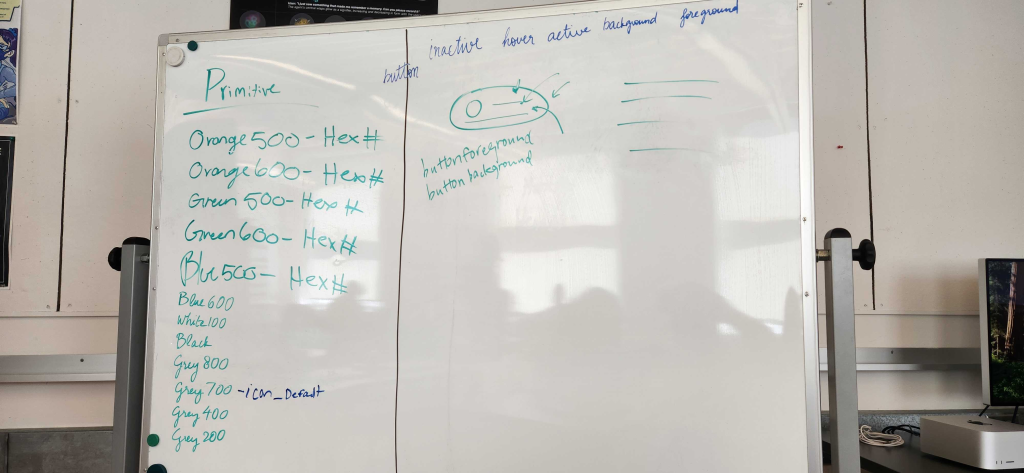 Primitive
Orange 500 - Hex #
Orange 600 - Hex #
Green 500 - Hex #
Green 600 - Hex #
Blue 500 - Hex #
Blue 600
White 100
Black
Grey 800
Grey 700 - icon_Default
Grey 400
Grey 200
button
inactive hover active background foreground
buttonforeground
button background